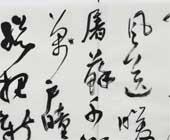 風送暖
屠蘇千
萬戶曈
總把新